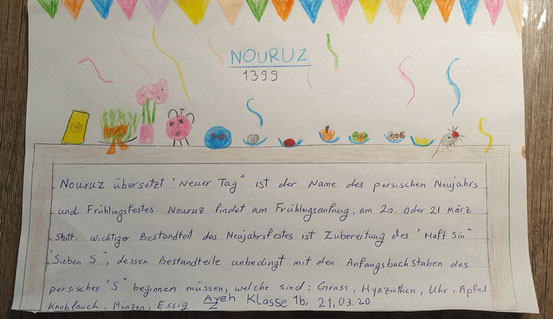 NOURUZ
1399
Nouruz übersetzt "Neuer Tag" ist der Name des persischen Neujahrs
und Frühlingsfestes. Nouruz findet am Frühlingsanfang, am 20. oder 21 März
statt. Wichtiger Bestandteil des Neujahrsfestes ist Zubereitung des "Haft Sin"
"Sieben S", dessen Bestandteile unbedingt mit den Anfangsbuchstaben des
persisches "S" beginnen müssen, welche sind: Grass, Hyazinthen, Uhr, Apfel
Knoblauch, Münzen, Essig Ayeh Klasse 1b, 21.03.20